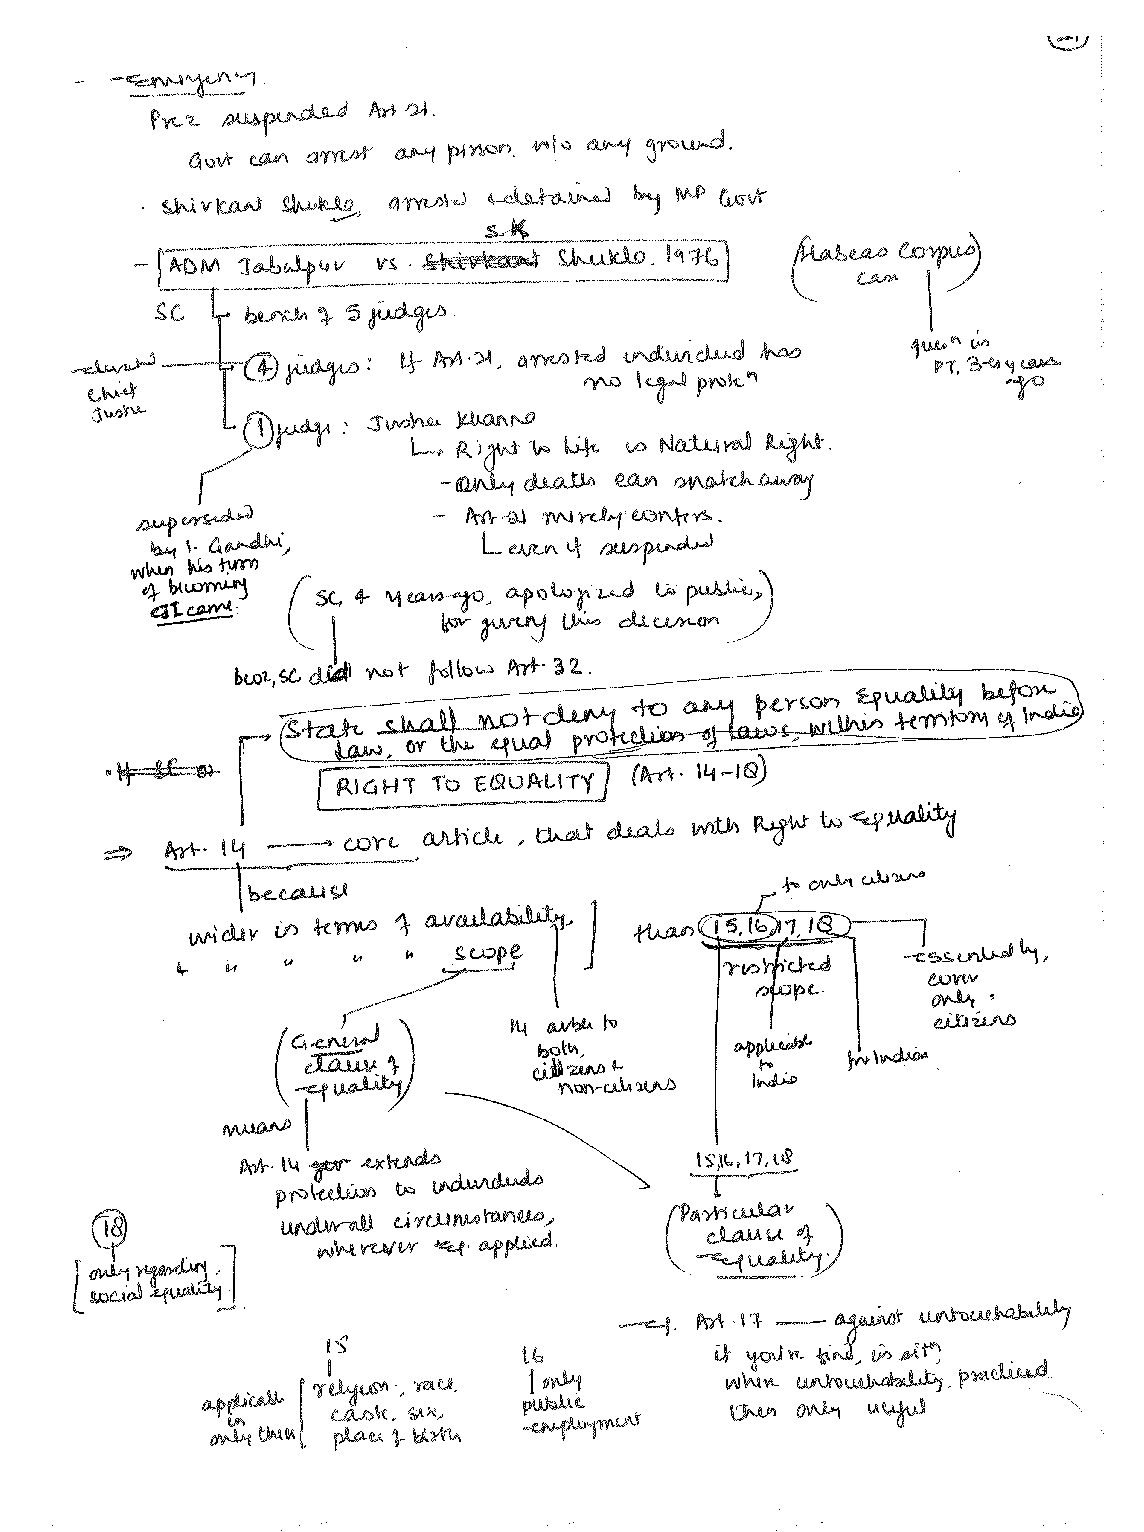 - Emergency
Prez suspended Art 21.
Govt can arrest any person w/o any ground.
. Shivkant Shukla, arrested & detained by MP Govt
S.K
- ADM Jabalpur vs. Shivkant Shukla. 1976
(Habeas Corpus)
case
quesn in
PT, 3-4 years
ago
SC
bench of 5 judges.
Chief
Justice
④ judges: If Art-21, arrested individual has
no legal protecn
① judge: Justice Khanna
Right to Life is Natural Right.
- Only death can snatch away
- Art-21 merely confers.
even if suspended
superseded
by I. Gandhi,
when his turn
of becoming
CJI came.
(SC, 4 years ago, apologized to public,
for giving this decision)
bcoz, SC did not follow Art. 32.
State shall not deny to any person Equality before
law, or the equal protection of laws, within territory of India
. If SC
RIGHT TO EQUALITY (Art. 14-18)
⇒ Art. 14 → core article, that deals with Right to Equality
because
wider in terms of availability,
" " " " scope
to only citizens
than 15, 16, 17, 18
restricted
scope.
essentially,
cover
only
citizens
(General
clause of
equality)
14 avble to
both,
citizens &
non-citizens
applicable
to
India
for Indian
means
Art. 14 extends
protection to individuals
under all circumstances,
wherever eq. applied.
15,16, 17, 18
(Particular
clause of
Equality)
18
[only regarding
social equality]
15
applicable
in
only these
religion, race,
caste, sex,
place of birth
16
only
public
employment
eg. Art. 17 — against untouchability
if you're find, in sitn
when untouchability practiced
then only useful